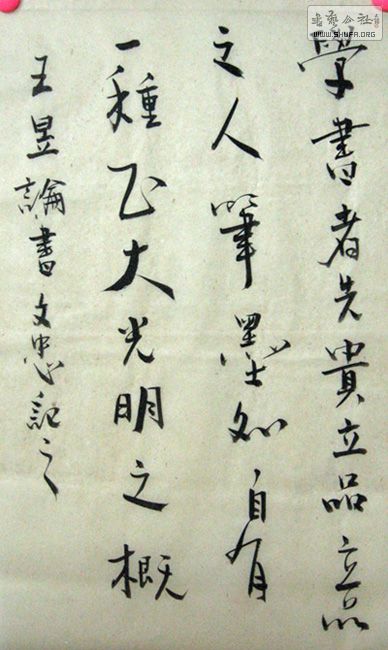 學書者先貴立品立品
之人筆墨外自有
一種正大光明之概
王昱論書文忠記之
書藝公社
WWW.SHUFA.ORG